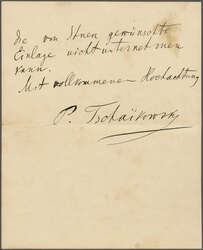 de von Ihnen gewünschte
Einlage nicht unternehmen
kann.
Mit vollkommener Hochachtung
P. Tschaïkowsky